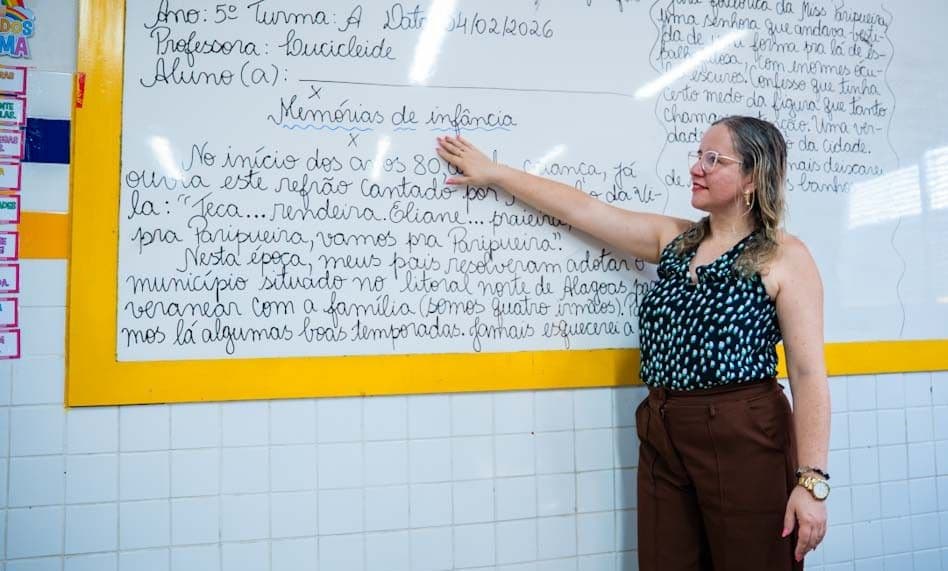 Ano: 5º Turma: A Data 04/02/2026
Professora: Lucicleide
Aluno(a):
Memórias de infância
No início dos anos 80 criança, já
ouvia este refrão cantado por da Vi
la: "Teca... rendeira. Eliane... praieira,
pra Paripueira, vamos pra Paripueira".
Nesta época, meus pais resolveram adotar o
município situado no litoral norte de Alagoas
veranear com a família (somos quatro irmãos).
mos lá algumas boas temporadas. Jamais esquecerei a
da Miss Paripueira,
uma senhora que andava vesti
da de uma forma pra lá de es
palhafatosa, com enormes ócu
escuros! Confesso que tinha
certo medo da figura que tanto
chama ção. Uma ver
dade o da cidade.
mais deixarei
de banho